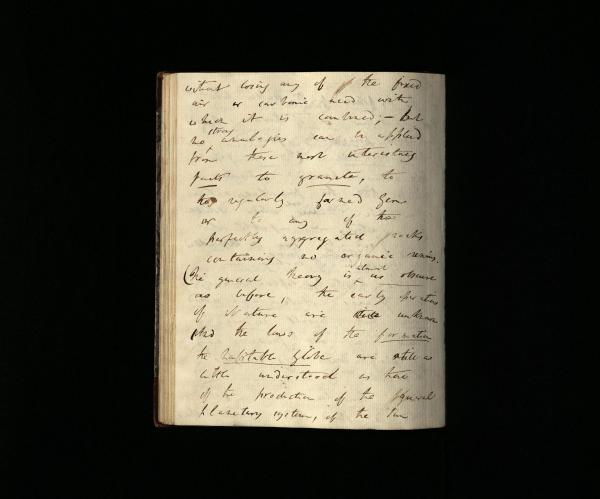 without losing any of the fixed
air or carbonic acid with
which it is combined; – but
no strong analogies can be applied
from these most interesting
facts to granite, to
the regularly formed Gems
or to any of the
perfectly aggregated rocks
containing no organic remains.
(The general theory is almost as obscure
as before, the early operations
of Nature are still unknown
And the laws of the formation
the habitable Globe are still as
little understood as those
of the production of the general
planetary system, of the Sun